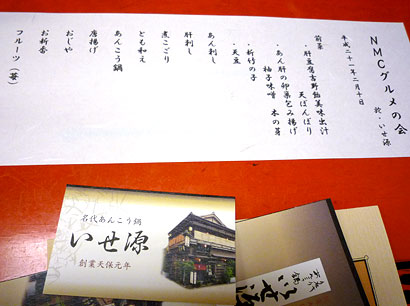 NMCグルメの会
於・いせ源
平成二十一年二月十日
前菜
・肝豆腐吉野餡美味出汁
天ぱんぱり
・あん肝の卯巣包み揚げ
柚子味噌 木の芽
・新竹の子
・天豆
あん刺し
肝刺し
煮こごり
とも和え
あんこう鍋
唐揚げ
おじや
お新香
フルーツ（苺）
名代あんこう鍋
いせ源
創業天保元年